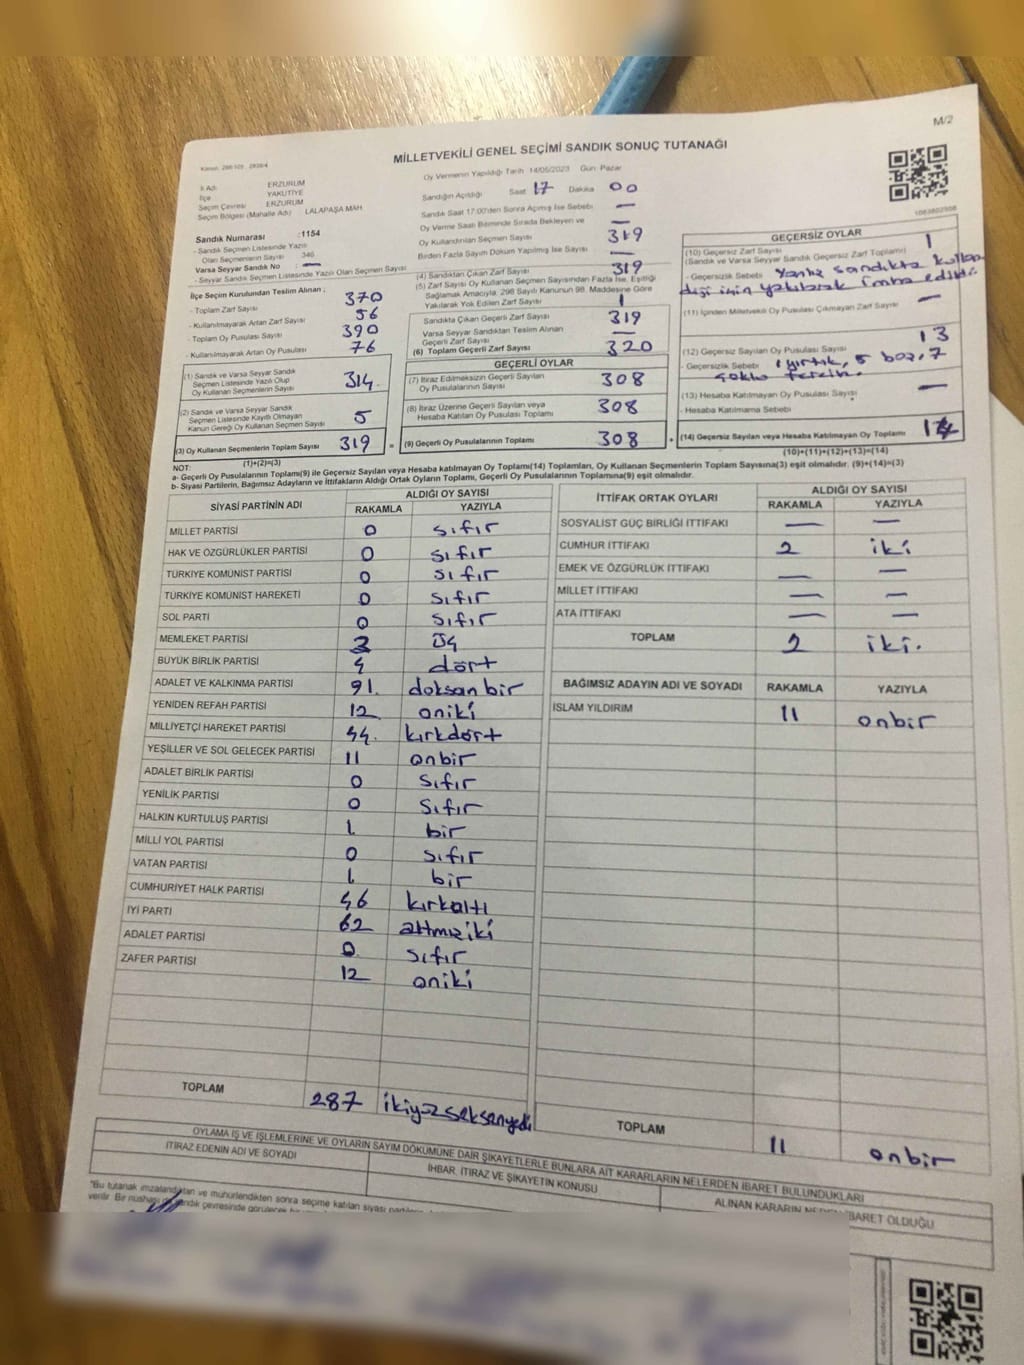 M/2
Kanun: 298/105 2839/4
MİLLETVEKİLİ GENEL SEÇİMİ SANDIK SONUÇ TUTANAĞI
İl Adı ERZURUM
İlçe YAKUTİYE
Seçim Çevresi ERZURUM
Seçim Bölgesi (Mahalle Adı) LALAPAŞA MAH
Sandık Numarası :1154
- Sandık Seçmen Listesinde Yazılı
Olan Seçmenlerin Sayısı 346
Varsa Seyyar Sandık No —
- Seyyar Sandık Seçmen Listesinde Yazılı Olan Seçmen Sayısı
İlçe Seçim Kurulundan Teslim Alınan ;
- Toplam Zarf Sayısı 370
- Kullanılmayarak Artan Zarf Sayısı 56
- Toplam Oy Pusulası Sayısı 390
- Kullanılmayarak Artan Oy Pusulası 76
(1) Sandık ve Varsa Seyyar Sandık
Seçmen Listesinde Yazılı Olup
Oy Kullanan Seçmenlerin Sayısı 314
(2) Sandık ve Varsa Seyyar Sandık
Seçmen Listesinde Kayıtlı Olmayan
Kanun Gereği Oy Kullanan Seçmen Sayısı 5
(3) Oy Kullanan Seçmenlerin Toplam Sayısı 319 =
(1)+(2)=(3)
Oy Vermenin Yapıldığı Tarih 14/05/2023 Gün Pazar
Sandığın Açıldığı Saat 17 Dakika 00
Sandık Saat 17:00'den Sonra Açılmış İse Sebebi —
Oy Verme Saati Bitiminde Sırada Bekleyen ve —
Oy Kullandırılan Seçmen Sayısı 319
Birden Fazla Sayım Döküm Yapılmış İse Sayısı —
(4) Sandıktan Çıkan Zarf Sayısı 319
(5) Zarf Sayısı Oy Kullanan Seçmen Sayısından Fazla İse, Eşitliği
Sağlamak Amacıyla, 298 Sayılı Kanunun 98. Maddesine Göre
Yakılarak Yok Edilen Zarf Sayısı 1
Sandıkta Çıkan Geçerli Zarf Sayısı 319
Varsa Seyyar Sandıktan Teslim Alınan
Geçerli Zarf Sayısı —
(6) Toplam Geçerli Zarf Sayısı 320
GEÇERLİ OYLAR
(7) İtiraz Edilmeksizin Geçerli Sayılan
Oy Pusulalarının Sayısı 308
(8) İtiraz Üzerine Geçerli Sayılan veya
Hesaba Katılan Oy Pusulası Toplamı 308
(9) Geçerli Oy Pusulalarının Toplamı 308 +
1083802508
GEÇERSİZ OYLAR
(10) Geçersiz Zarf Sayısı 1
(Sandık ve Varsa Seyyar Sandık Geçersiz Zarf Toplamı)
- Geçersizlik Sebebi Yanlış sandıkta kullan
dığı için yakılarak imha edildi.
(11) İçinden Milletvekili Oy Pusulası Çıkmayan Zarf Sayısı —
(12) Geçersiz Sayılan Oy Pusulası Sayısı 13
- Geçersizlik Sebebi 1 yırtık, 5 boş, 7
çoklu tercih.
(13) Hesaba Katılmayan Oy Pusulası Sayısı —
- Hesaba Katılmama Sebebi
(14) Geçersiz Sayılan veya Hesaba Katılmayan Oy Toplamı
(10)+(11)+(12)+(13)=(14)
NOT:
a- Geçerli Oy Pusulalarının Toplamı(9) ile Geçersiz Sayılan veya Hesaba katılmayan Oy Toplamı(14) Toplamları, Oy Kullanan Seçmenlerin Toplam Sayısına(3) eşit olmalıdır. (9)+(14)=(3)
b- Siyasi Partilerin, Bağımsız Adayların ve İttifakların Aldığı Ortak Oyların Toplamı, Geçerli Oy Pusulalarının Toplamına(9) eşit olmalıdır.
SİYASİ PARTİNİN ADI ALDIĞI OY SAYISI
RAKAMLA YAZIYLA
MİLLET PARTİSİ 0 sıfır
HAK VE ÖZGÜRLÜKLER PARTİSİ 0 sıfır
TÜRKİYE KOMÜNİST PARTİSİ 0 sıfır
TÜRKİYE KOMÜNİST HAREKETİ 0 sıfır
SOL PARTİ 0 sıfır
MEMLEKET PARTİSİ 3 üç
BÜYÜK BİRLİK PARTİSİ 4 dört
ADALET VE KALKINMA PARTİSİ 91. doksan bir
YENİDEN REFAH PARTİSİ 12 oniki
MİLLİYETÇİ HAREKET PARTİSİ 44. kırkdört
YEŞİLLER VE SOL GELECEK PARTİSİ 11 onbir
ADALET BİRLİK PARTİSİ 0 sıfır
YENİLİK PARTİSİ 0 sıfır
HALKIN KURTULUŞ PARTİSİ 1 bir
MİLLİ YOL PARTİSİ 0 sıfır
VATAN PARTİSİ 1 bir
CUMHURİYET HALK PARTİSİ 46 kırkaltı
İYİ PARTİ 62 altmışiki
ADALET PARTİSİ 0 sıfır
ZAFER PARTİSİ 12 oniki
TOPLAM 287 ikiyüzseksenyedi
İTTİFAK ORTAK OYLARI ALDIĞI OY SAYISI
RAKAMLA YAZIYLA
SOSYALİST GÜÇ BİRLİĞİ İTTİFAKI — —
CUMHUR İTTİFAKI 2 iki
EMEK VE ÖZGÜRLÜK İTTİFAKI — —
MİLLET İTTİFAKI — —
ATA İTTİFAKI — —
TOPLAM 2 iki.
BAĞIMSIZ ADAYIN ADI VE SOYADI RAKAMLA YAZIYLA
İSLAM YILDIRIM 11 onbir
TOPLAM 11 onbir
OYLAMA İŞ VE İŞLEMLERİNE VE OYLARIN SAYIM DÖKÜMÜNE DAİR ŞİKAYETLERLE BUNLARA AİT KARARLARIN NELERDEN İBARET BULUNDUKLARI
İTİRAZ EDENİN ADI VE SOYADI
İHBAR, İTİRAZ VE ŞİKAYETİN KONUSU
ALINAN KARARIN NEDEN İBARET OLDUĞU
"Bu tutanak imzalandıktan ve mühürlendikten sonra seçime katılan siyasi
verilir. Bir nüshası da sandık çevresinde görülecek bir